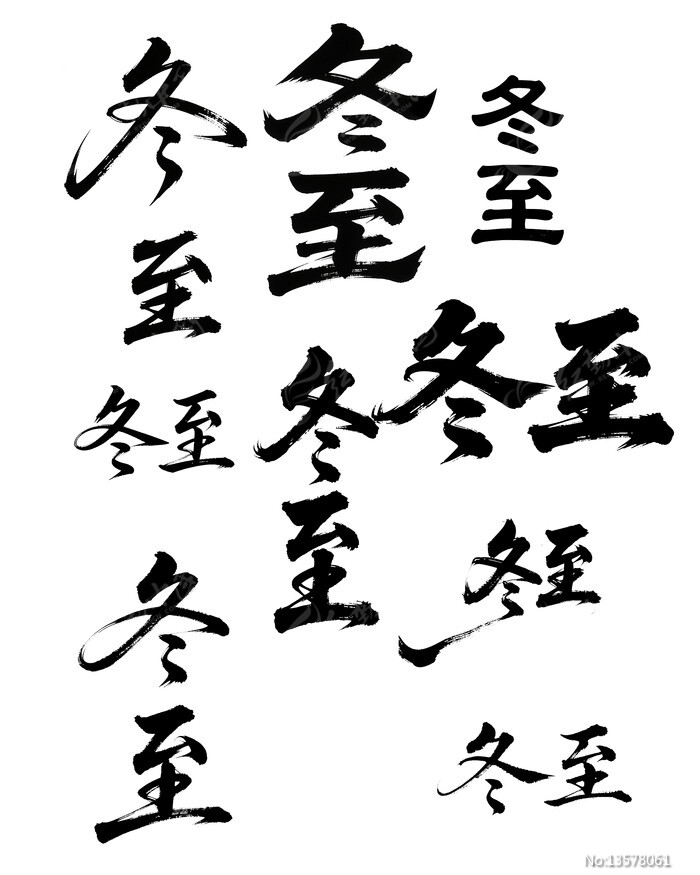 冬至
冬至
冬至
冬至
冬至
冬至
冬至
冬至
冬至
No:13578061